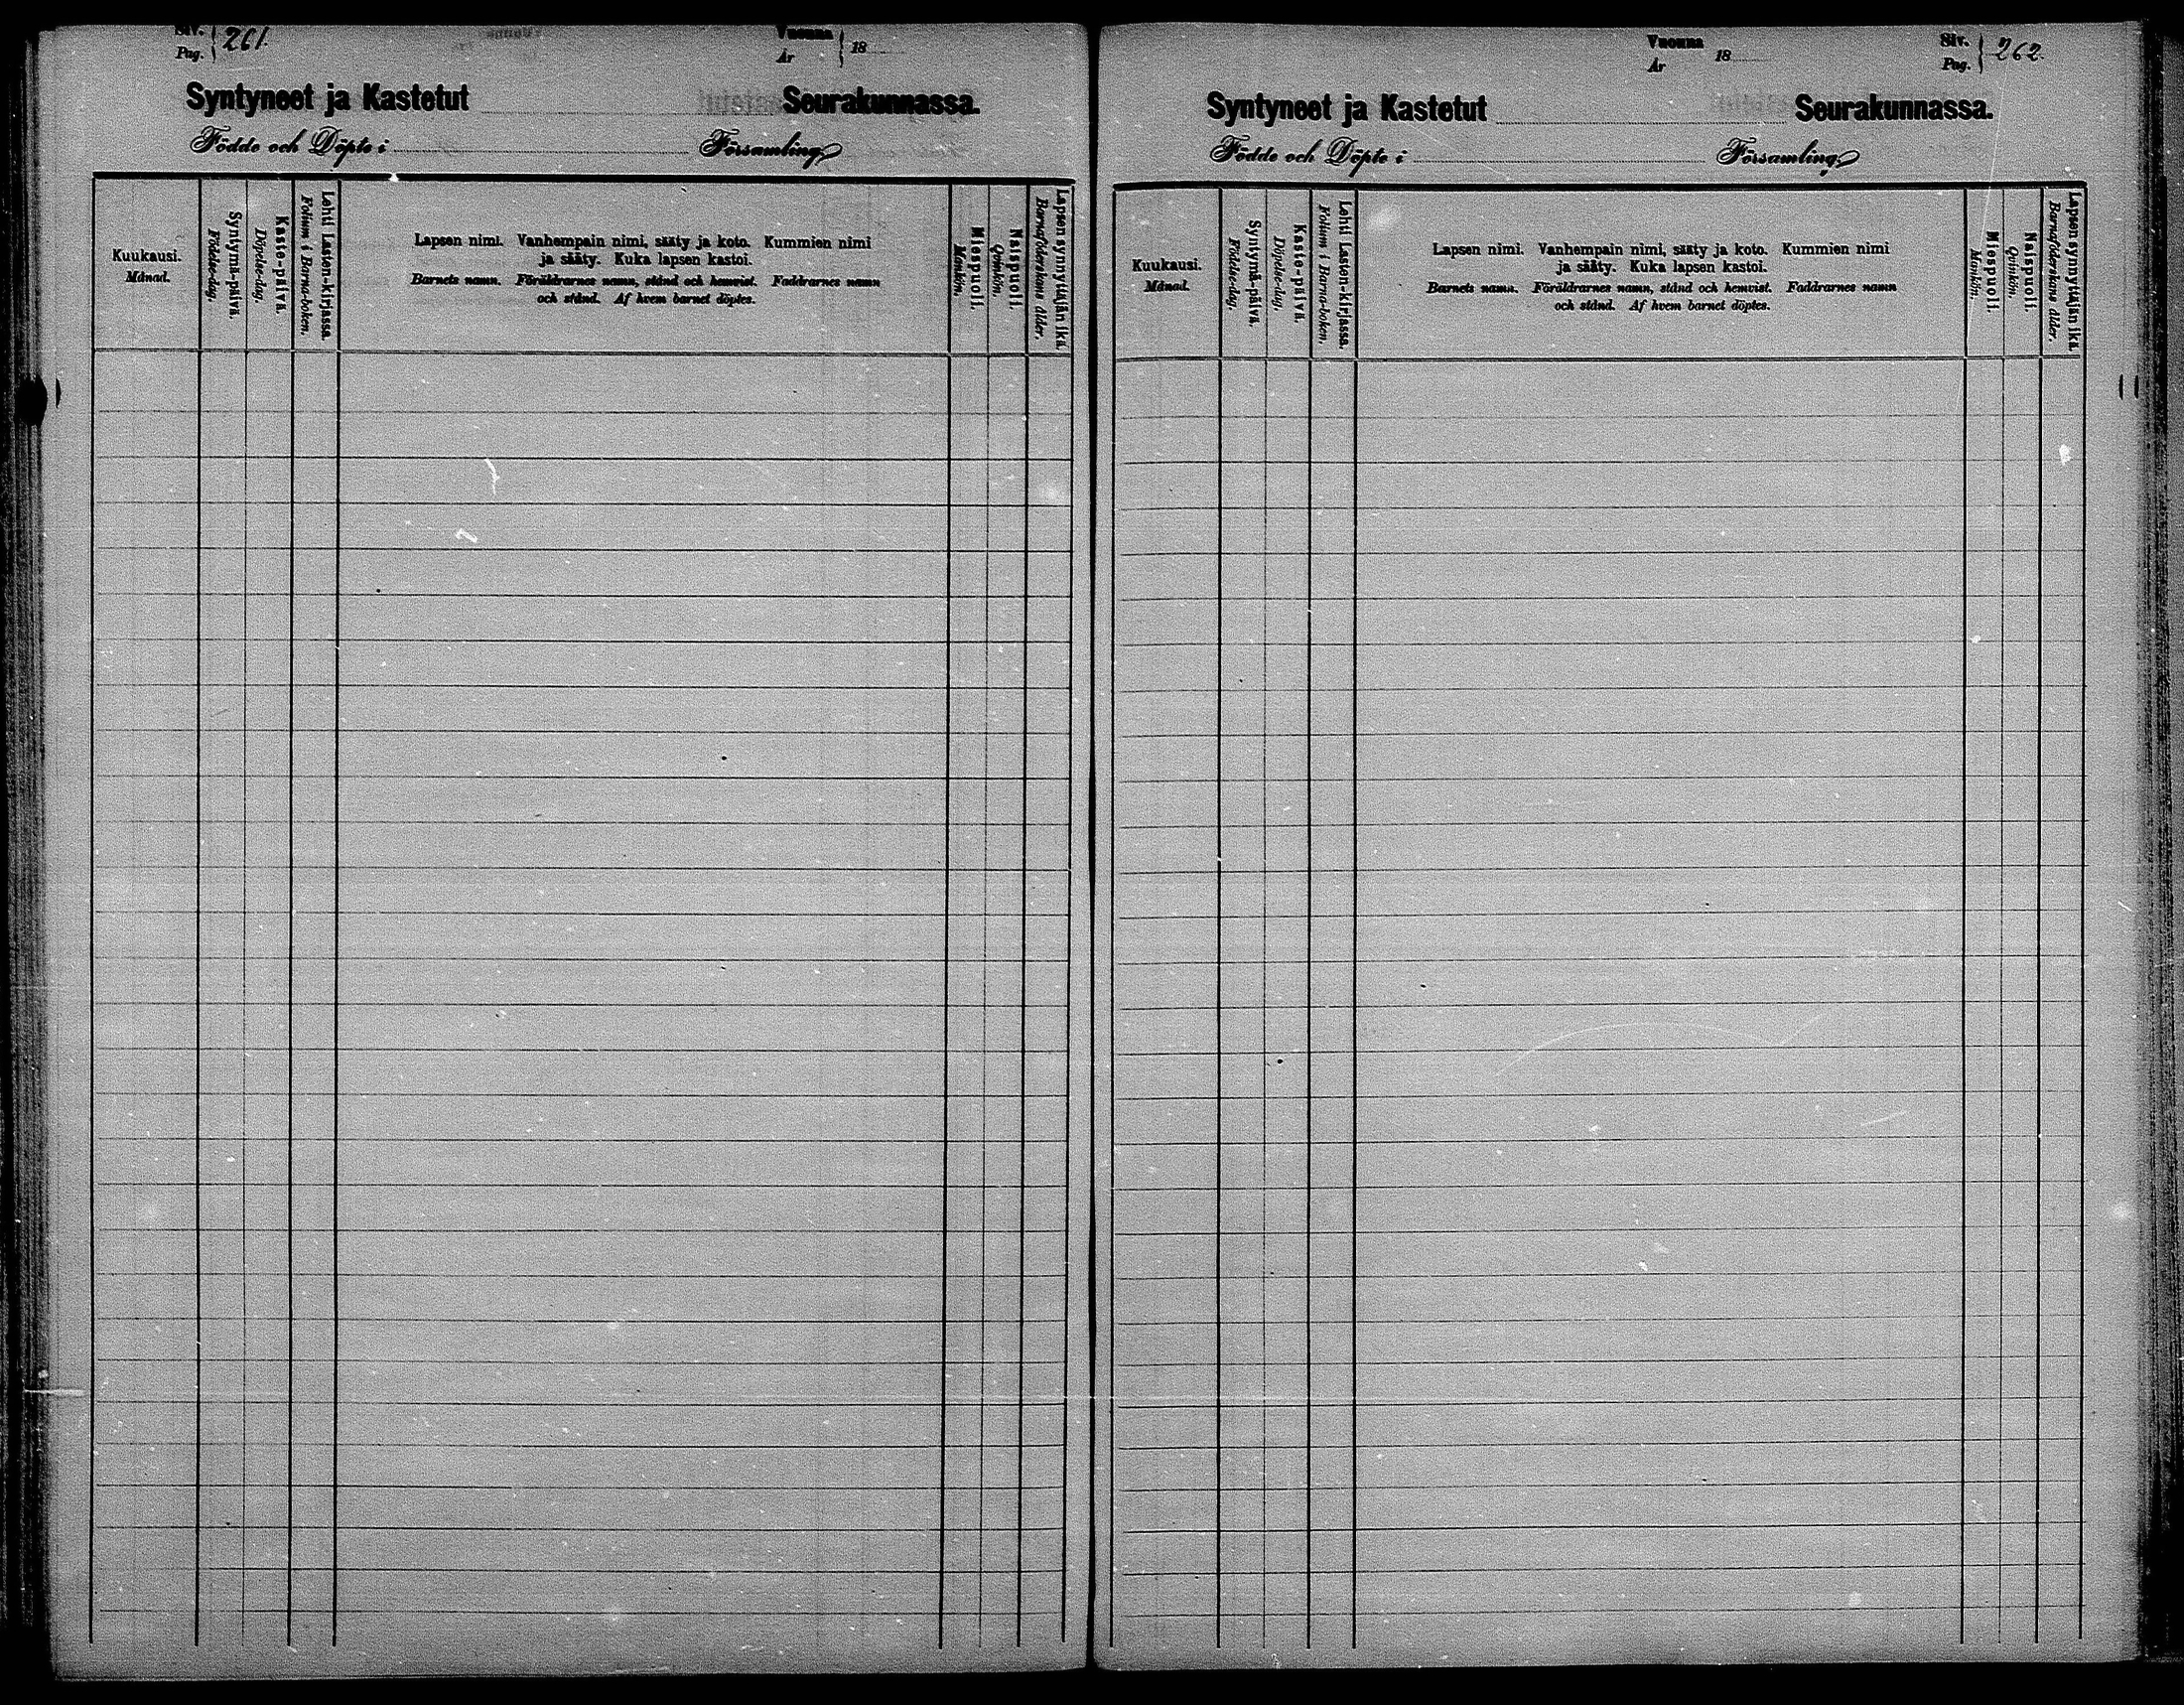 Siv. Pag. } 261. Vuonna År } 18
Syntyneet ja Kastetut Seurakunnassa.
Födde och Döpte i Församling
Kuukausi.
Månad.
Syntymä-päivä.
Födelse-dag.
Kaste-päivä.
Döpelse-dag.
Lehti Lasten-kirjassa.
Folium i Barna-boken.
Lapsen nimi. Vanhempain nimi, sääty ja koto. Kummien nimi
ja sääty. Kuka lapsen kastoi.
Barnets namn. Föräldrarnes namn, stånd och hemvist. Faddrarnes namn
och stånd. Af hvem barnet döptes.
Miespuoli.
Mankön.
Naispuoli.
Qvinkön.
Lapsen synnyttäjän ikä.
Barnaföderskans ålder.
Vuonna År 18 Siv. Pag. } 262.
Syntyneet ja Kastetut Seurakunnassa.
Födde och Döpte i Församling
Kuukausi.
Månad.
Syntymä-päivä.
Födelse-dag.
Kaste-päivä.
Döpelse-dag.
Lehti Lasten-kirjassa.
Folium i Barna-boken.
Lapsen nimi. Vanhempain nimi, sääty ja koto. Kummien nimi
ja sääty. Kuka lapsen kastoi.
Barnets namn. Föräldrarnes namn, stånd och hemvist. Faddrarnes namn
och stånd. Af hvem barnet döptes.
Miespuoli.
Mankön.
Naispuoli.
Qvinkön.
Lapsen synnyttäjän ikä.
Barnaföderskans ålder.